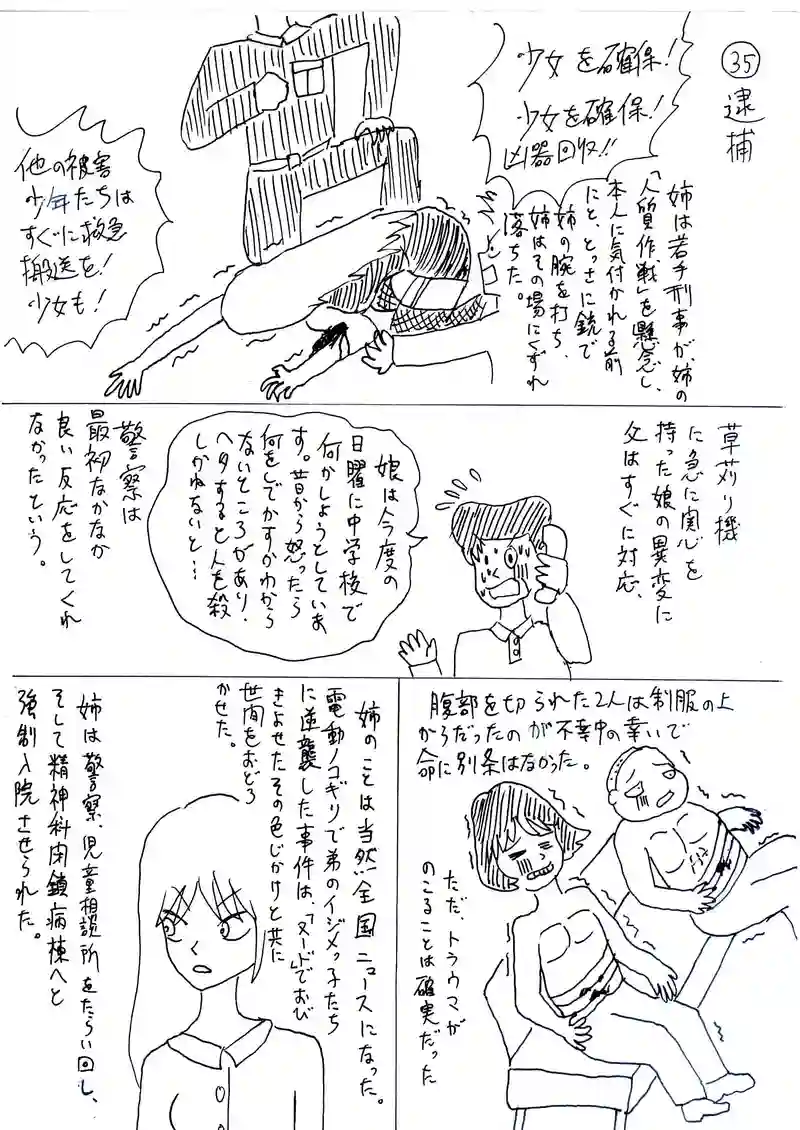 ㉟ 逮捕
少女を確保!
少女を確保!
凶器回収!!
姉は若手刑事が、姉の
「人質作戦」を懸念し、
本人に気付かれる前
にと、とっさに銃で
姉の腕を打ち、
姉はその場にくずれ
落ちた。
他の被害
少年たちは
すぐに救急
搬送を!
少女も!
草刈り機
に急に関心を
持った娘の異変に
父はすぐに対応、
娘は今度の
日曜に中学校で
何かしようとしていま
す。昔から怒ったら
何をしでかすかわから
ないところがあり・
ヘタすると人を殺
しかねないと…
警察は
最初なかなか
良い反応をしてくれ
なかったという。
腹部を切られた2人は制服の上
からだったのが不幸中の幸いで
命に別条はなかった。
ただ、トラウマが
のこることは確実だった
姉のことは当然全国ニュースになった。
電動ノコギリで弟のイジメっ子たち
に逆襲した事件は、「ヌード」でおび
きよせたその色じかけと共に
世間をおどろ
かせた。
姉は警察、児童相談所をたらい回し、
そして精神科閉鎖病棟へと
強制入院させられた。